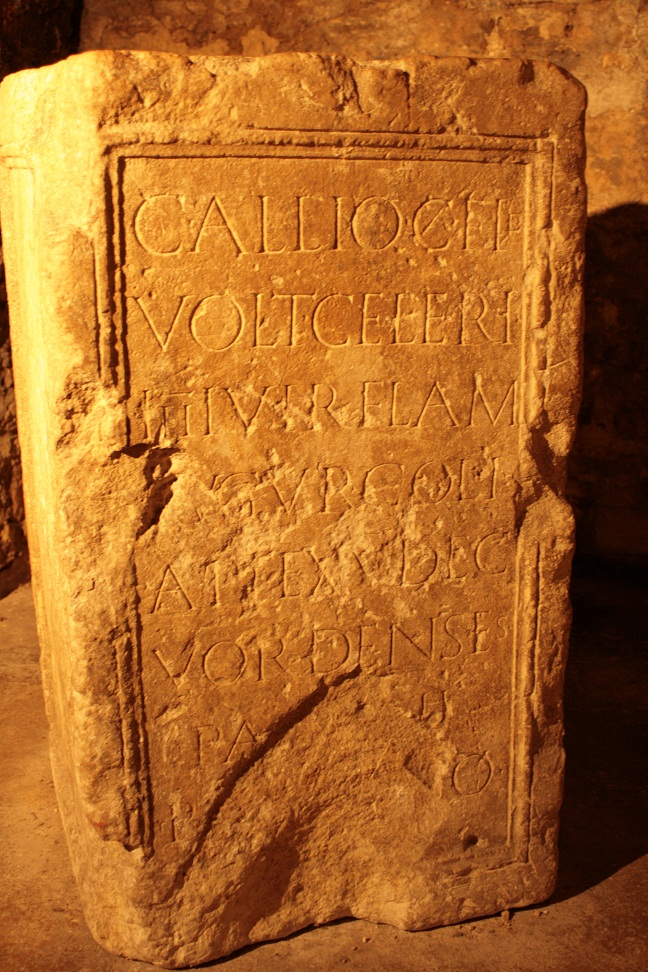 C ALLIO C F
VOLT CELERI
IIIIVIR FLAM
VGVR COL I
APT EX V DEC
VORDENSES
PA
P O